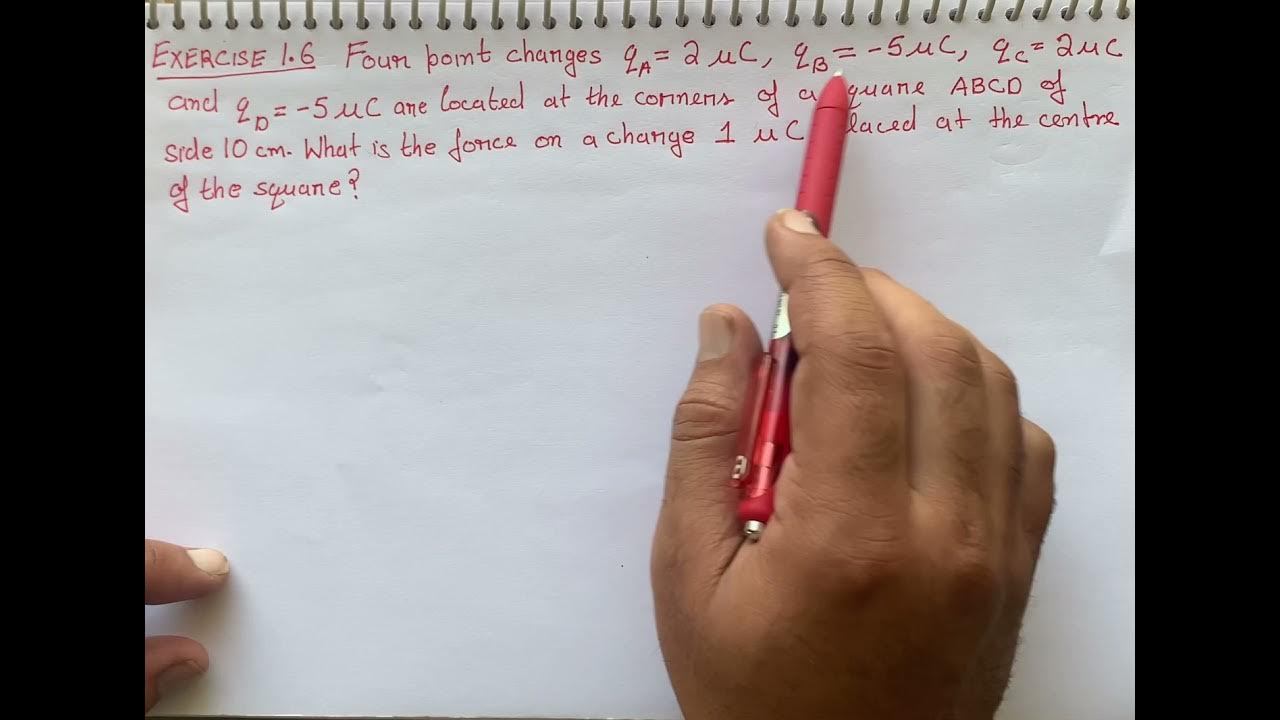 EXERCISE 1.6 Four point charges qA = 2 μC, qB = -5 μC, qC = 2 μC
and qD = -5 μC are located at the corners of a square ABCD of
side 10 cm. What is the force on a charge 1 μC placed at the centre
of the square?